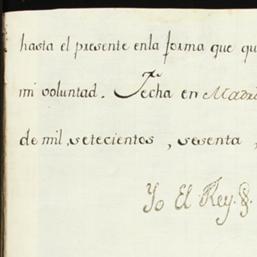 hasta el presente enla forma que qu
mi voluntad. Fecha en Madri
de mil, setecientos, sesenta,
Yo El Rey.